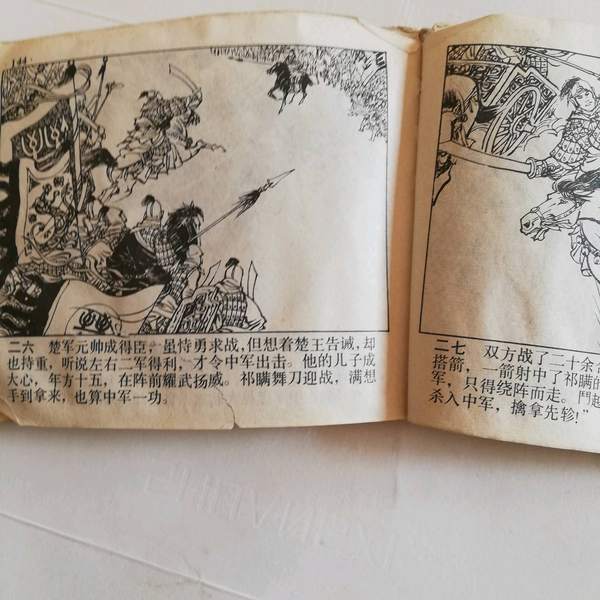 144
二六 楚军元帅成得臣，虽恃勇求战，但想着楚王告诫，却
也持重，听说左右二军得利，才令中军出击。他的儿子成
大心，年方十五，在阵前耀武扬威。祁瞒舞刀迎战，满想
手到拿来，也算中军一功。
二七 双方战了二十余合
搭箭，一箭射中了祁瞒的
军，只得绕阵而走。鬥越
杀入中军，擒拿先轸!"